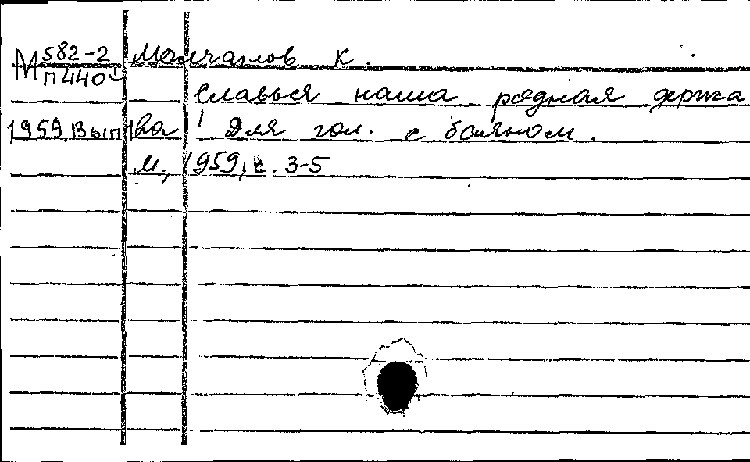 М 582-2 Молчанов К.
П440
Славься наша родная держа
1959 Вып ва! Для гол. с баяном.
М., 1959, с. 3-5